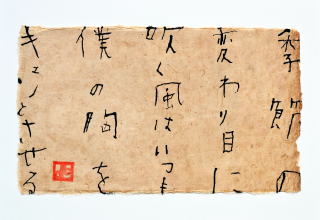 季節の
変わり目に
吹く風はいつも
僕の胸を
キュンとさせる